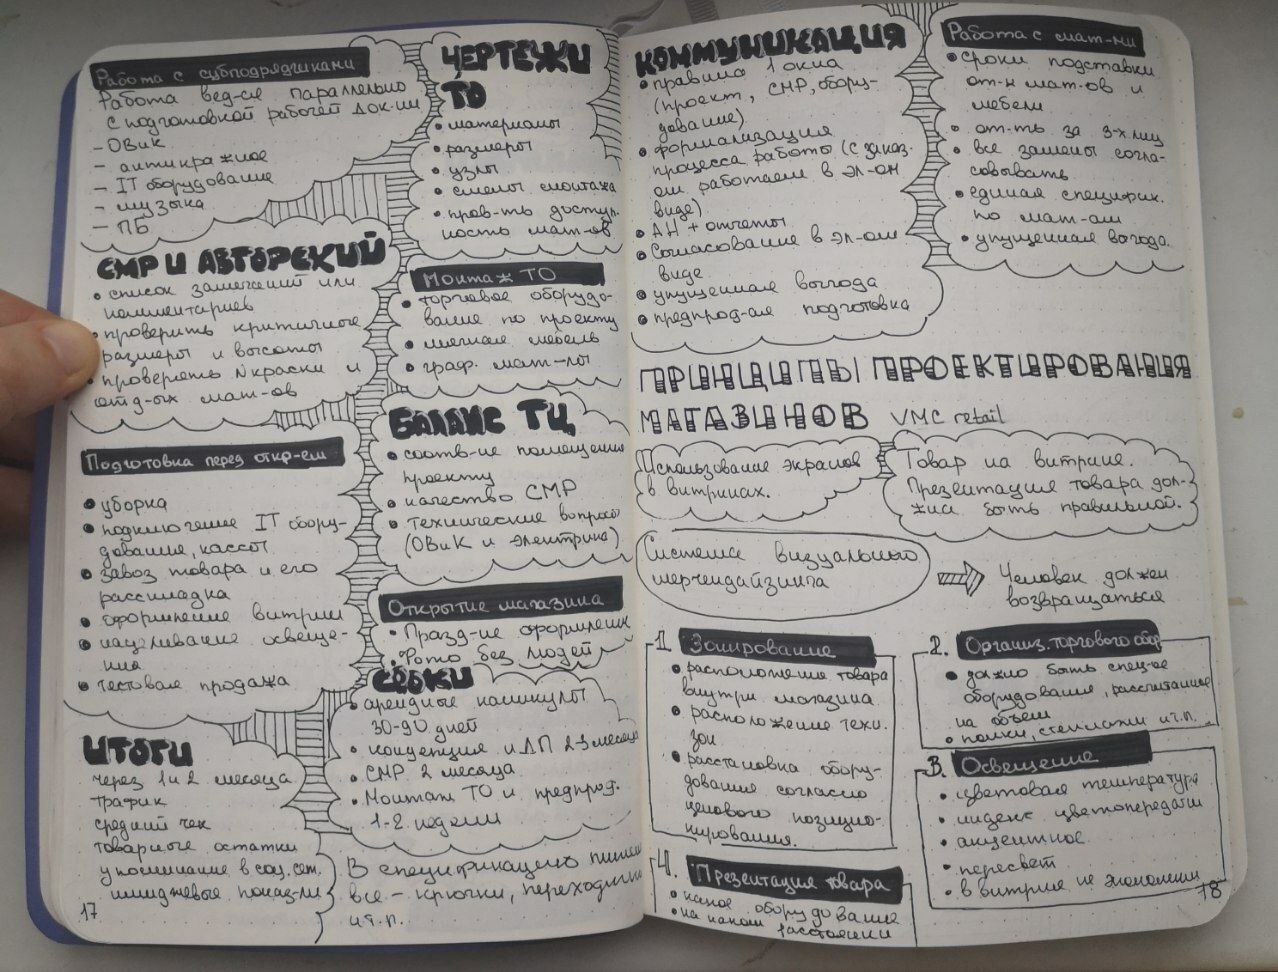 Работа с субподрядчиками
Работа вед-ся параллельно
с подготовкой рабочей док-ии
- ОВиК
- антикражное
- IT оборудование
- музыка
- ПБ
СМР И АВТОРСКИЙ
• список замечаний или
комментариев
• проверить критичные
размеры и высоты
• проверять № краски и
отд-ых мат-ов
Подготовка перед откр-ем
• уборка
• подключение IT обору-
дование, кассы
• завоз товара и его
раскладка
• оформление витрин
• нацеливание освеще-
ния
• тестовая продажа
ИТОГИ
через 1 и 2 месяца
трафик
средний чек
товарные остатки
упоминание в соц. сет.
имиджевые показ-ли
17
ЧЕРТЕЖИ
ТО
• материалы
• размеры
• узлы
• схемы монтажа
• пров-ть доступ-
ность мат-ов
Монтаж ТО
• торговое оборудо-
вание по проекту
• мягкая мебель
• граф. мат-лы
БАЛАНС ТЦ
• соотв-ие помещения
проекту
• качество СМР
• технические вопросы
(ОВиК и электрика)
Открытие магазина
• Празд-ие оформление
• Фото без людей
СРОКИ
• арендные каникулы
30-90 дней
• концепция и ДП 2-3 месяца
• СМР 2 месяца
• Монтаж ТО и предпрод.
1-2 недели
В спецификацию пишем
все - крючки, переходники
и т.п.
КОММУНИКАЦИЯ
• правило 1 окна
(проект, СМР, обору-
дование)
• формализация
процесса работы (с заказ.
ом работаем в эл-ом
виде)
• АН + отчеты
• Согласование в эл-ом
виде
• упущенная выгода
• предпрод-ая подготовка
Работа с мат-ми
• сроки поставки
от-н мат-ов и
мебели
• от-ть за 3-х лиц
• все замены согла-
совывать
• единая специфик.
по мат-ам
• упущенная выгода.
ПРИНЦИПЫ ПРОЕКТИРОВАНИЯ
МАГАЗИНОВ VMC retail
Использование экранов
в витринах.
Товар на витрине.
Презентация товара дол-
жна быть правильной.
Система визуального
мерчендайзинга
Человек должен
возвращаться
1. Зонирование
• расположение товара
внутри магазина
• расположение техн.
зон
• расстановка обору-
дование согласно
ценового позицио-
нирования.
2. Организ. торгового обор
• должно быть спец-ое
оборудование, рассчитанное
на объем
• полки, стеллажи и т.п.
3. Освещение
• цветовая температура
• индекс цветопередачи
• акцентное
• пересвет
• в витрине не экономим
4. Презентация товара
• какое оборудование
• на каком расстоянии
18